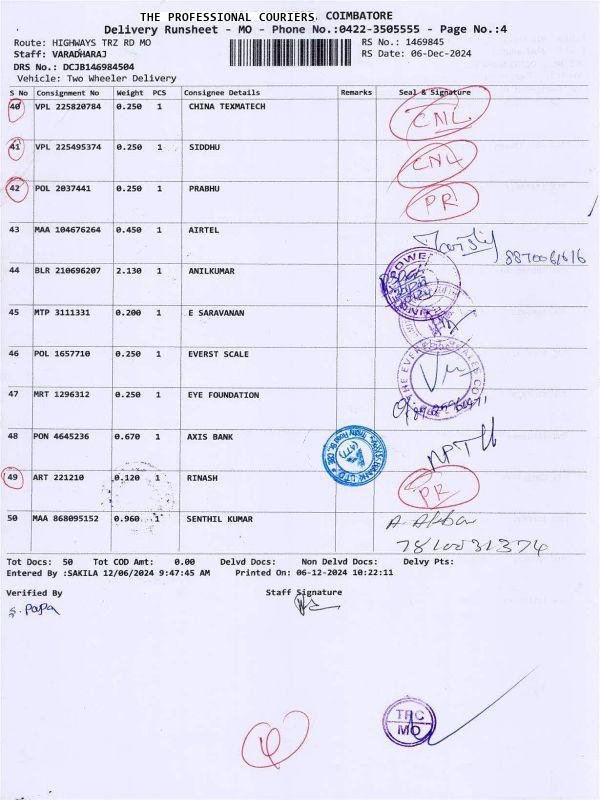 THE PROFESSIONAL COURIERS, COIMBATORE
Delivery Runsheet - MO - Phone No.:0422-3505555 - Page No.:4
Route: HIGHWAYS TRZ RD MO RS No.: 1469845
Staff: VARADHARAJ RS Date: 06-Dec-2024
DRS No.: DCJB146984504
Vehicle: Two Wheeler Delivery
S No Consignment No Weight PCS Consignee Details Remarks Seal & Signature
40 VPL 225820784 0.250 1 CHINA TEXMATECH CNL
41 VPL 225495374 0.250 1 SIDDHU CNL
42 POL 2037441 0.250 1 PRABHU PR
43 MAA 104676264 0.450 1 AIRTEL
44 BLR 210696207 2.130 1 ANILKUMAR
45 MTP 3111331 0.200 1 E SARAVANAN
46 POL 1657710 0.250 1 EVERST SCALE
47 MRT 1296312 0.250 1 EYE FOUNDATION
48 PON 4645236 0.670 1 AXIS BANK
49 ART 221210 0.120 1 RINASH PR
50 MAA 868095152 0.960 1 SENTHIL KUMAR
7810031374
Tot Docs: 50 Tot COD Amt: 0.00 Delvd Docs: Non Delvd Docs: Delvy Pts:
Entered By :SAKILA 12/06/2024 9:47:45 AM Printed On: 06-12-2024 10:22:11
Verified By Staff Signature
S. Papa
TRC
MO